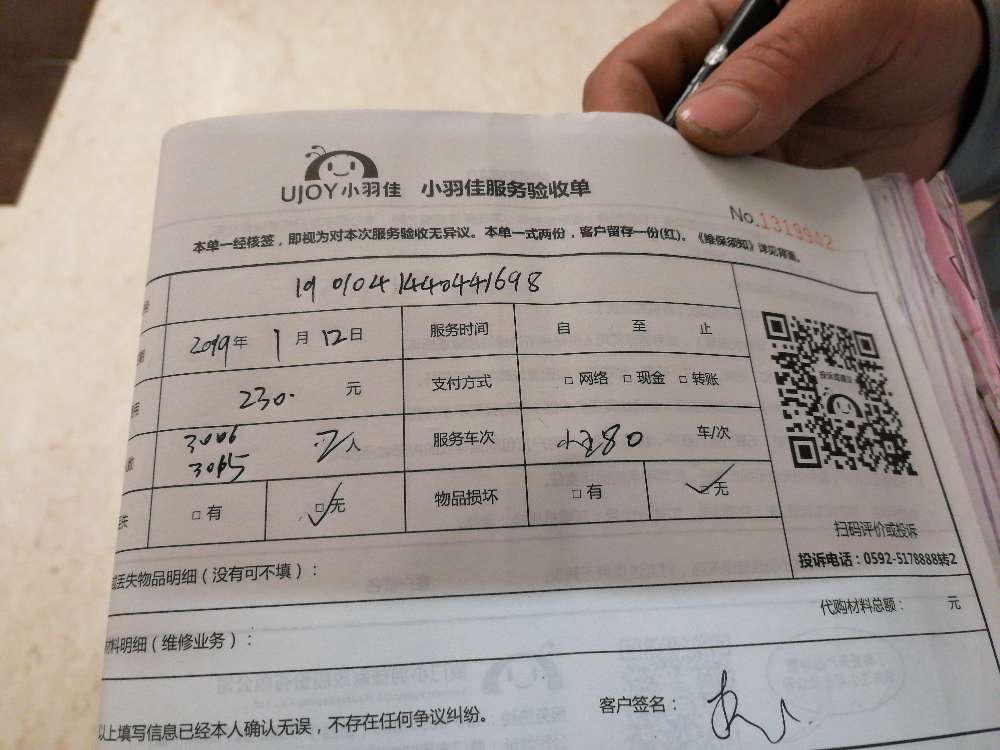 UJOY小羽佳 小羽佳服务验收单
No.1319942
本单一经核签，即视为对本次服务验收无异议。本单一式两份，客户留存一份(红)。《维保须知》详见背面。
19 0104 1440441698
2019年 1月 12日 服务时间 自 至 止
230. 元 支付方式 □网络 □现金 □转账
3006
3065 2人 服务车次 80 车/次
□有 □无 物品损坏 □有 □无
扫码评价或投诉
投诉电话：0592-5178888转2
丢失物品明细（没有可不填）：
代购材料总额： 元
材料明细（维修业务）：
以上填写信息已经本人确认无误，不存在任何争议纠纷。
客户签名：